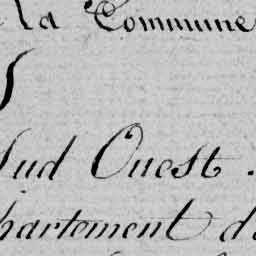 la Commune
Sud Ouest.
partement de